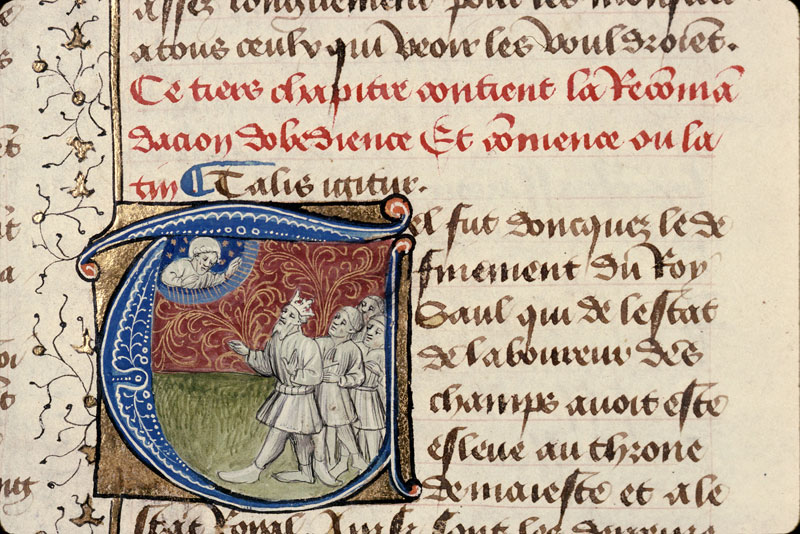 assez longuement pour les monstrer
a tous ceulx qui veoir les vouldroient.
Ce tiers chapitre contient la Recōmā
dacion dobedience Et cōmence ou la
tin Talis igitur.
Tel fut doncquez le de
finement du Roy
Saul qui de lestat
de laboureur des
champs auoit este
esleue au throne
de maieste et a le
stat Royal